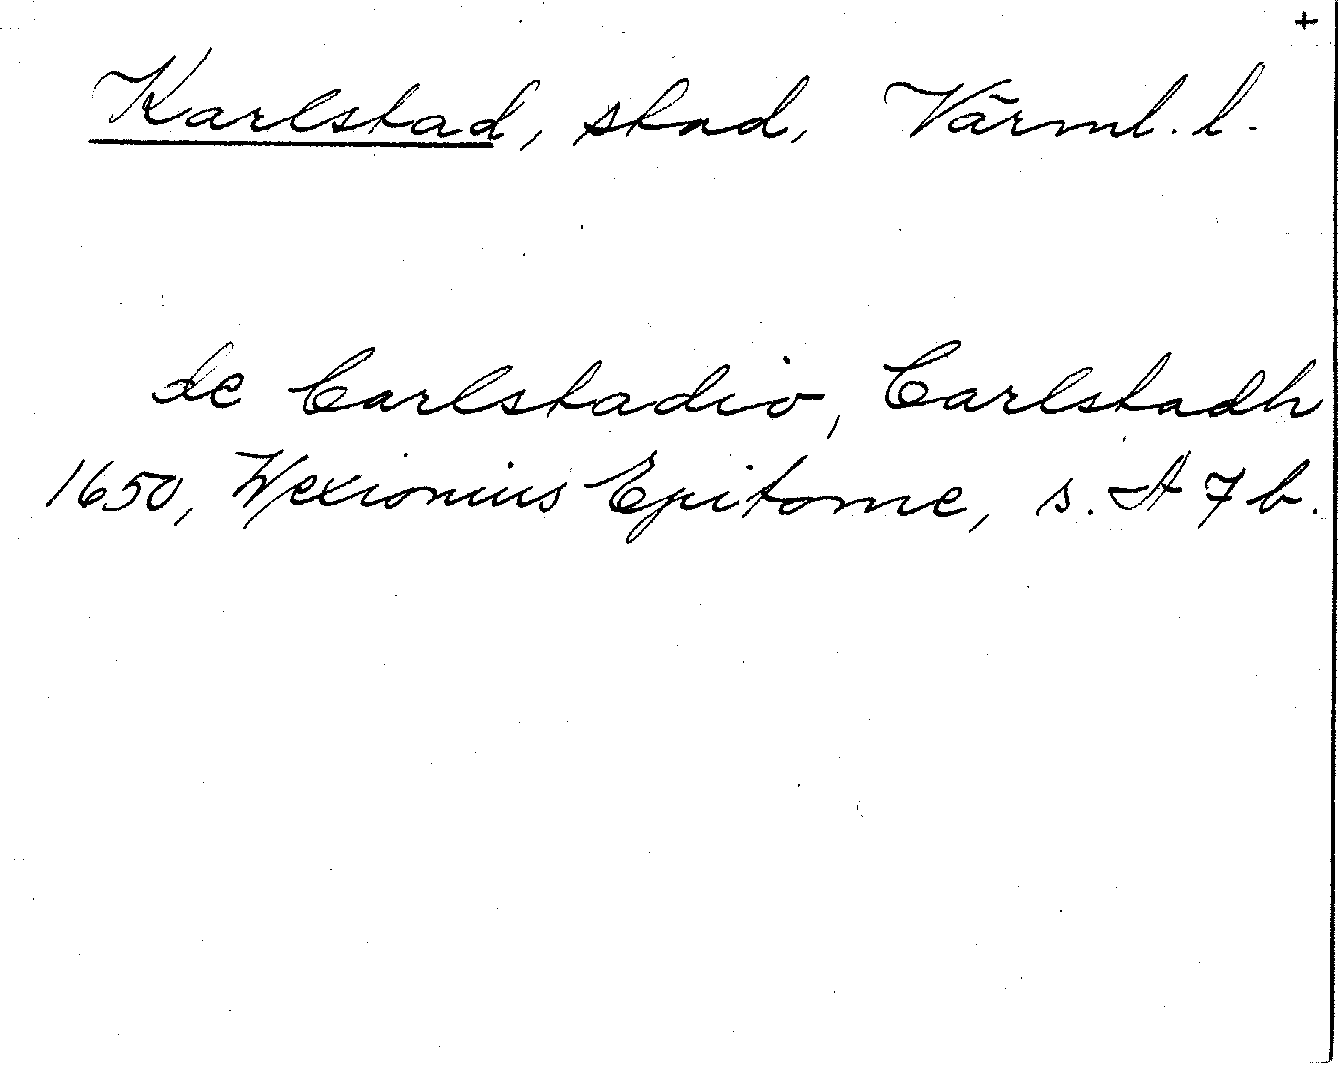 +
Karlstad, stad, Värml. l.
de Carlstadio, Carlstadh
1650, Wexionius Epitome, s. A 7 b.